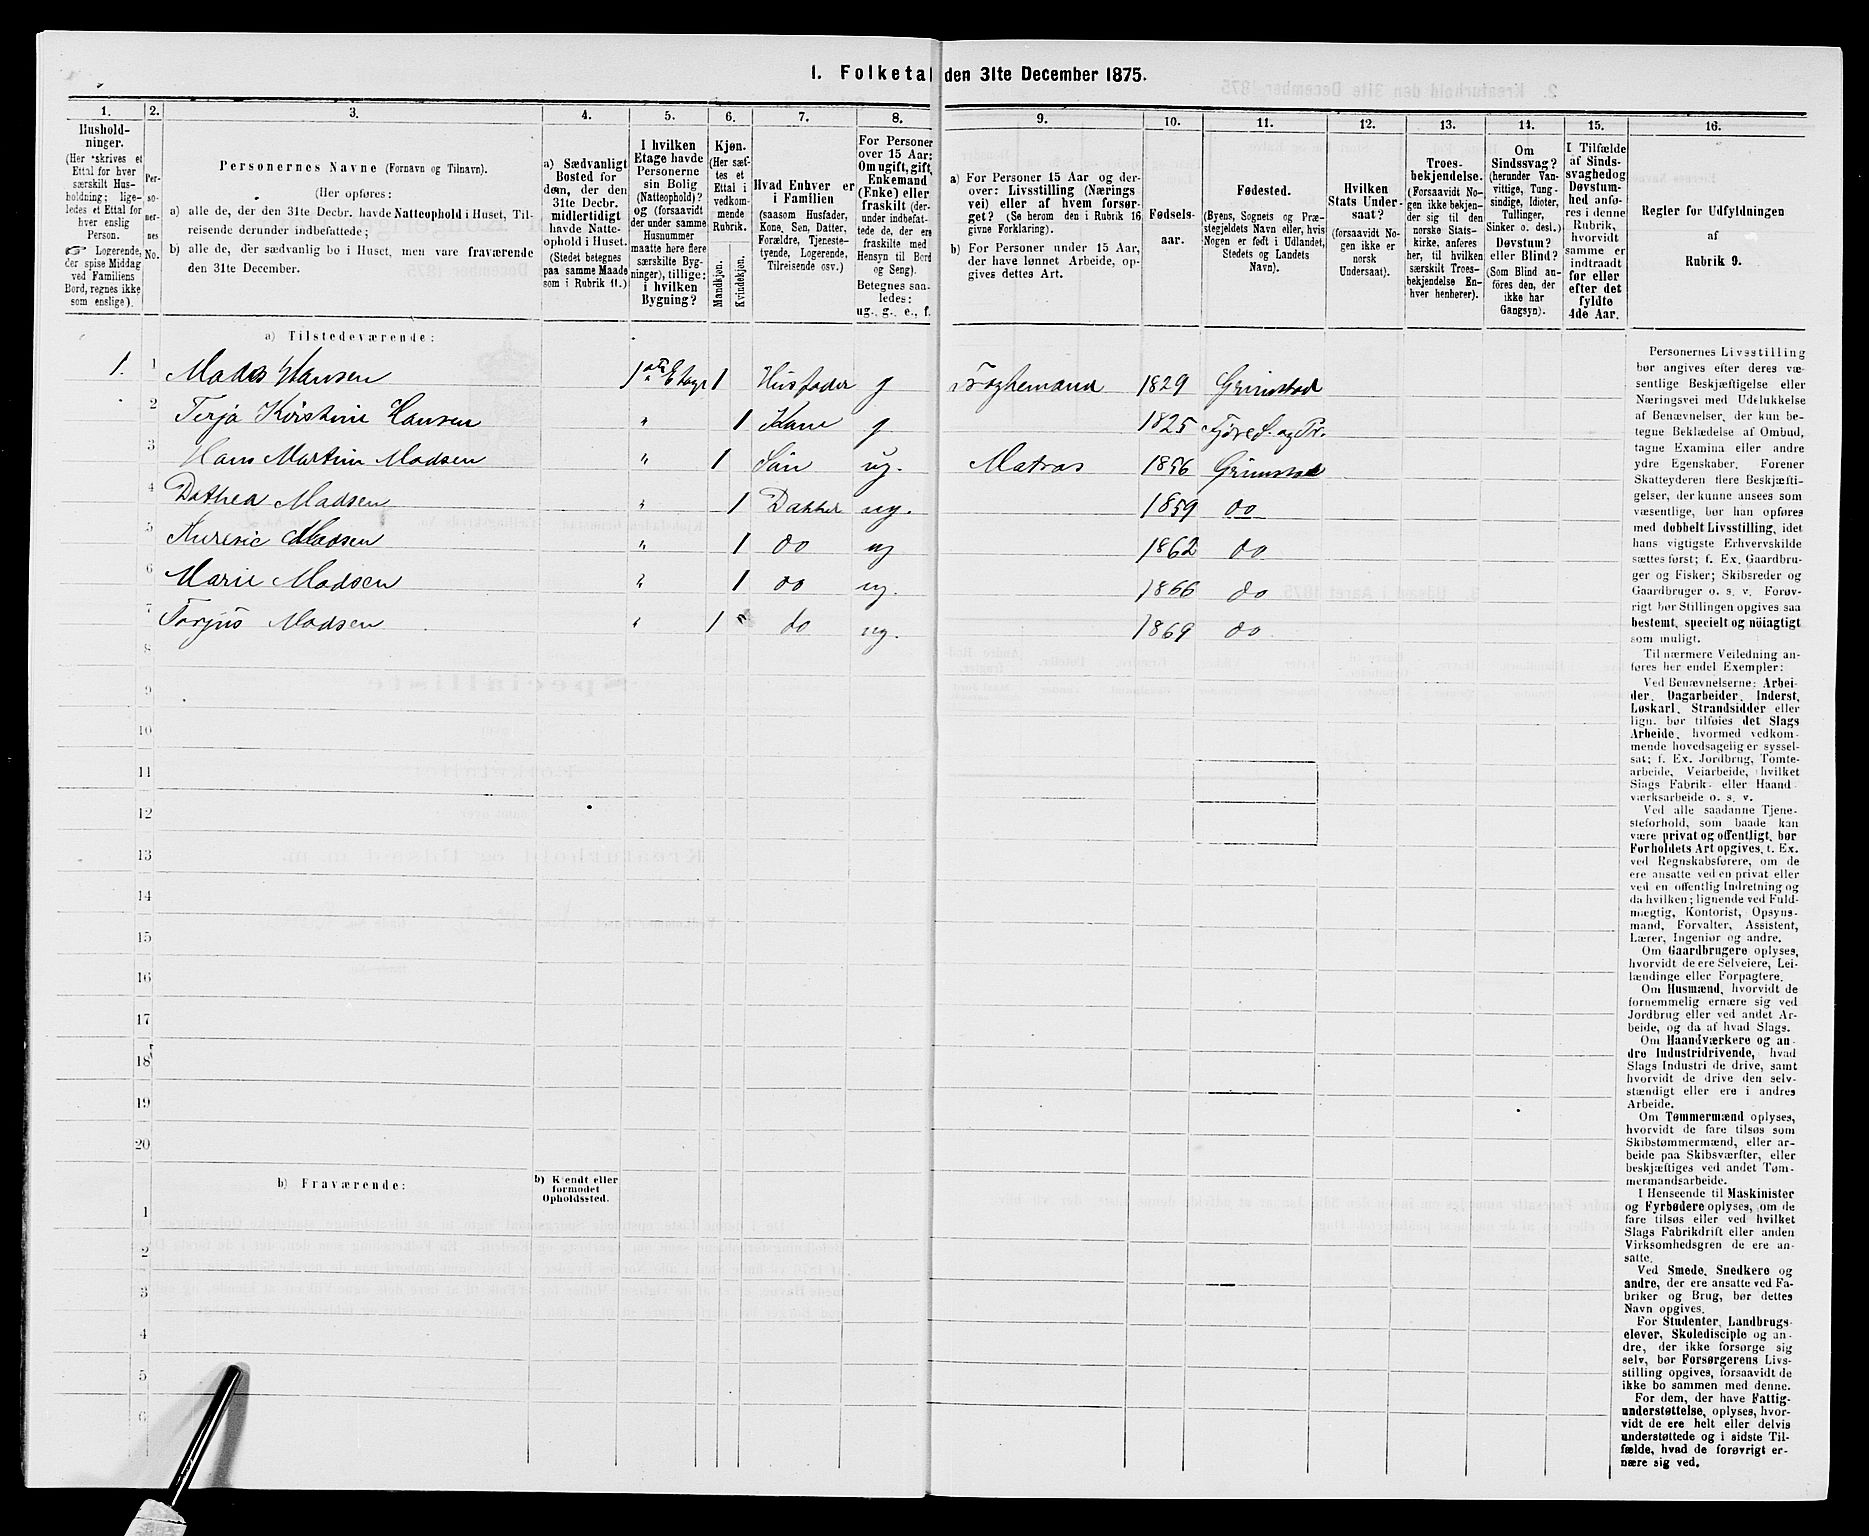 1. Folketal den 31te December 1875.
1. 2. 3. 4. 5. 6. 7. 8. 9. 10. 11. 12. 13. 14. 15. 16.
Hushold-
ninger.
(Her skrives et
Ettal for hver
særskilt Hus-
holdning; lige-
ledes et Ettal for
hver enslig
Person.
☞ Logerende,
der spise Middag
ved Familiens
Bord, regnes ikke
som enslige).
Per-
so-
ner-
nes
No.
Personernes Navne (Fornavn og Tilnavn).
(Her opføres:
a) alle de, der den 31te Decbr. havde Natteophold i Huset, Til-
reisende derunder indbefattede;
b) alle de, der sædvanlig bo i Huset, men vare fraværende
den 31te December.
a) Sædvanligt
Bosted for
dem, der den
31te Decbr.
midlertidigt
havde Natte-
ophold i Huset.
(Stedet betegnes
paa samme Maade
som i Rubrik 11.)
I hvilken
Etage havde
Personerne
sin Bolig
(Natteophold)?
og (forsaavidt
der under samme
Husnummer
maatte høre flere
særskilte Byg-
ninger), tillige:
i hvilken
Bygning?
Kjøn.
(Her sæt-
tes et
Ettal i
vedkom-
mende
Rubrik.
Mandkjøn.
Kvindekjøn.
Hvad Enhver er
i Familien
(saasom Husfader,
Kone, Søn, Datter,
Forældre, Tjeneste-
tyende, Logerende,
Tilreisende osv.)
For Personer
over 15 Aar:
Om ugift, gift,
Enkemand
(Enke) eller
fraskilt (der-
under indbefat-
tede de, der ere
fraskilte med
Hensyn til Bord
og Seng).
Betegnes saa-
ledes:
ug., g., e., f.
a) For Personer 15 Aar og der-
over: Livsstilling (Nærings
vei) eller af hvem forsør-
get? (Se herom den i Rubrik 16
givne Forklaring).
b) For Personer under 15 Aar,
der have lønnet Arbeide, op-
gives dettes Art.
Fødsels-
aar.
Fødested.
(Byens, Sognets og Præ-
stegjeldets Navn eller, hvis
Nogen er født i Udlandet,
Stedets og Landets
Navn).
Hvilken
Stats Under-
saat?
(forsaavidt No-
gen ikke er
norsk
Undersaat).
Troes-
bekjendelse.
(Forsaavidt No-
gen ikke bekjen-
der sig til den
norske Stats-
kirke, anføres
her, til hvilken
særskilt Troes-
bekjendelse En-
hver henhører).
Om
Sindssvag?
(herunder Van-
vittige, Tung-
sindige, Idioter,
Tullinger,
Sinker o. desl.)
Døvstum?
eller Blind?
(Som Blind an-
føres den, der
ikke har
Gangsyn).
I Tilfælde
af Sinds-
svaghed og
Døvstum-
hed anfø-
res i denne
Rubrik,
hvorvidt
samme er
indtraadt
før eller
efter det
fyldte
4de Aar.
Regler for Udfyldningen
af
Rubrik 9.
a) Tilstedeværende:
1. 1 Mads Hansen 1ste Etage 1 Husfader g 1829 Grimstad
2 Terja Kirstine Hansen " 1 Kone g 1825 Fjære S. og Pr.
3 Hans Martin Madsen " 1 Søn ug. Matros 1856 Grimstad
4 Dathea Madsen " 1 Datter ug. 1859 do
5 Madsen " 1 do ug 1862 do
6 Marie Madsen " 1 do ug. 1866 do
7 Torjus Madsen " 1 do ug. 1869 do
8
9
10
11
12
13
14
15
16
17
18
19
20
b) Fraværende:
b) Kjendt eller
formodet
Opholdssted.
1
2
3
4
5
6
Personernes Livsstilling
bør angives efter deres væ-
sentlige Beskjæftigelse eller
Næringsvei med Udelukkelse
af Benævnelser, der kun be-
tegne Beklædelse af Ombud,
tagne Examina eller andre
ydre Egenskaber. Forener
Skatteyderen flere Beskjæfti-
gelser, der kunne ansees som
væsentlige, bør han opføres
med dobbelt Livsstilling, idet
hans vigtigste Erhvervskilde
sættes først; f. Ex. Gaardbru-
ger og Fisker; Skibsreder og
Gaardbruger o. s. v. Forøv-
rigt bør Stillingen opgives saa
bestemt, specielt og nöiagtigt
som muligt.
Til nærmere Veiledning an-
føres her endel Exempler:
Ved Benævnelserne: Arbei-
der, Dagarbeider, Inderst,
Løskarl, Strandsidder eller
lign. bør tilføies det Slags
Arbeide, hvormed vedkom-
mende hovedsagelig er syssel-
sat; f. Ex. Jordbrug, Tomte-
arbeide, Veiarbeide, hvilket
Slags Fabrik- eller Haand
værksarbeide o. s. v.
Ved alle saadanne Tjene-
steforhold, som baade kan
være privat og offentligt, bør
Forholdets Art opgives, f. Ex.
ved Regnskabsførere, om de
ere ansatte ved en privat eller
ved en offentlig Indretning og
da hvilken; lignende ved Fuld-
mægtig, Kontorist, Opsyns-
mand, Forvalter, Assistent,
Lærer, Ingeniør og andre.
Om Gaardbrugere oplyses,
hvorvidt de ere Selveiere, Lei-
lændinge eller Forpagtere.
Om Husmænd, hvorvidt de
fornemmelig ernære sig ved
Jordbrug eller ved andet Ar-
beide, og da af hvad Slags.
Om Haandværkere og an-
dre Industridrivende, hvad
Slags Industri de drive, samt
hvorvidt de drive den selv-
stændigt eller ere i andres
Arbeide.
Om Tømmermænd oplyses,
hvorvidt de fare tilsøs som
Skibstømmermænd, eller ar-
beide paa Skibsværfter, eller
beskjæftiges ved andet Tøm-
mermandsarbeide.
I Henseende til Maskinister
og Fyrbødere oplyses, om de
fare tilsøs eller ved hvilket
Slags Fabrikdrift eller anden
Virksomhedsgren de ere an-
satte.
Ved Smede, Snedkere og
andre, der ere ansatte ved Fa-
briker og Brug, bør dettes
Navn opgives.
For Studenter, Landbrugs-
elever, Skoledisciple og an-
dre, der ikke forsørge sig
selv, bør Forsørgerens Livs-
stilling opgives, forsaavidt de
ikke bo sammen med denne.
For dem, der have Fattig-
understøttelse, oplyses, hvor-
vidt de ere helt eller delvis
understøttede og i sidste Til-
fælde, hvad de forøvrigt er-
nære sig ved.